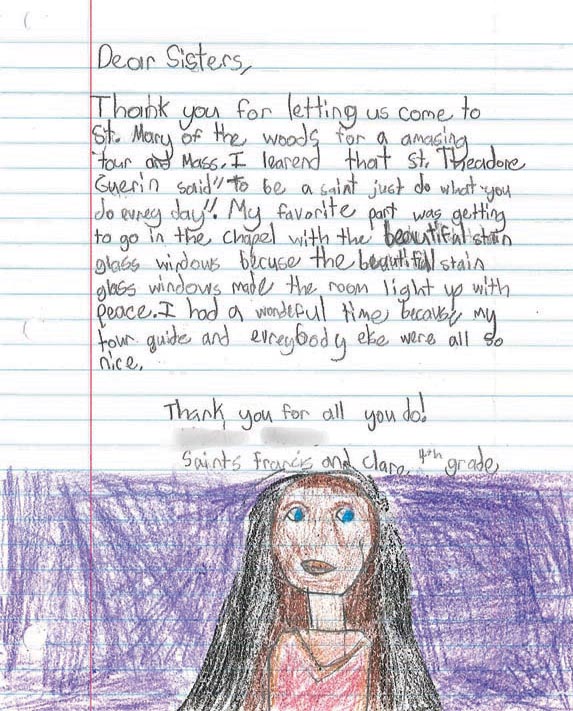 Dear Sisters,
Thank you for letting us come to
St. Mary of the woods for a amasing
tour and Mass. I learend that St. Theadore
Guerin said" to be a saint just do what you
do evrey day". My favorite part was getting
to go in the chapel with the beautiful stain
glass windows becuse the beautiful stain
glass windows made the room light up with
peace. I had a wondeful time because my
tour guide and evreybody else were all so
nice.
Thank you for all you do!
Saints Francis and Clare, 4th grade